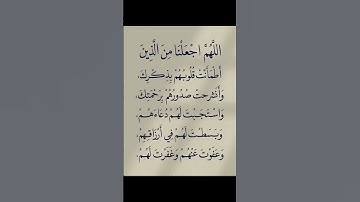 اللَّهُمَّ اجْعَلْنَا مِنَ الَّذِينَ
اطْمَأَنَّتْ قُلُوبُهُمْ بِذِكْرِكَ،
وَانْشَرَحَتْ صُدُورُهُمْ بِرَحْمَتِكَ،
وَاسْتَجَبْتَ لَهُمْ دُعَاءَهُمْ،
وَبَسَطْتَ لَهُمْ فِي أَرْزَاقِهِمْ،
وَعَفَوْتَ عَنْهُمْ وَغَفَرْتَ لَهُمْ.